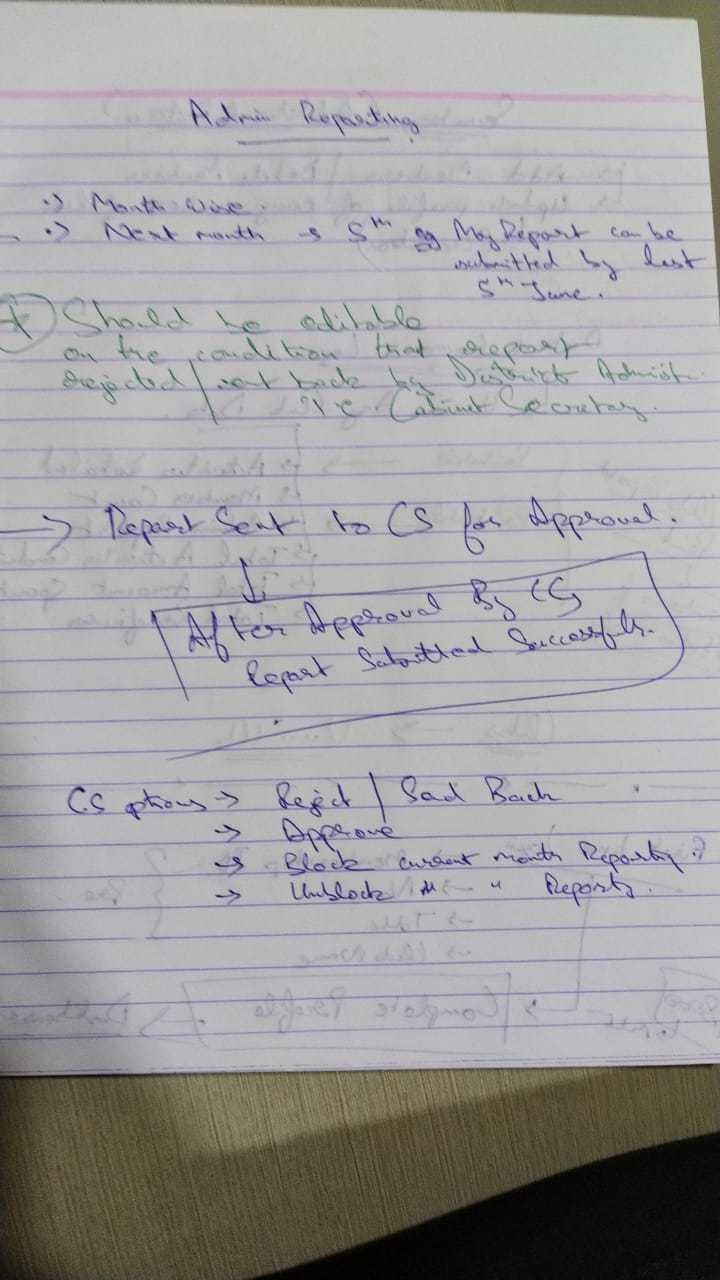 Admin Reporting
•> Month wise.
•> Next month → 5th eg May Report can be
submitted by last
5th June.
* Should be editable
on the condition that report
rejected / sent back by District Admin
i.e Cabinet Secretary.
→ Report Sent to CS for Approval.
↓
After Approval By CS
Report Submitted Successfully.
CS options → Reject / Send Back
→ Approve
→ Block current month Reporting.
→ Unblock " " Reporting.